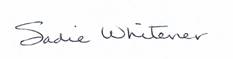 Sadie Whitener